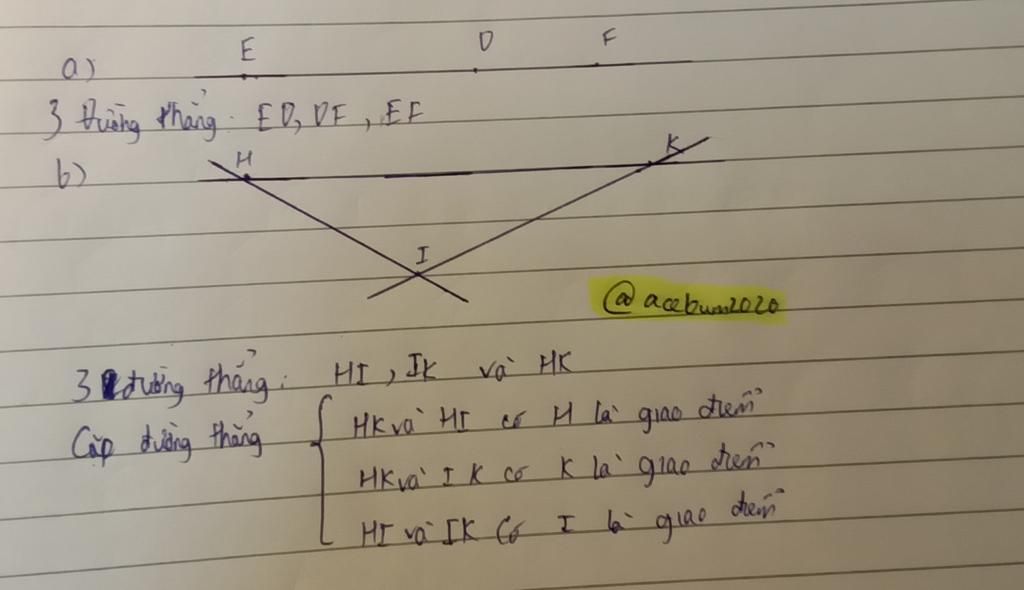 E D F
a)
3 đường thẳng: ED, DF, EF
H K
b)
I
@acebum2020
3 đường thẳng: HI, IK và HK
Cặp đường thẳng { HK và HI có H là giao điểm
HK và IK có K là giao điểm
HI và IK có I là giao điểm